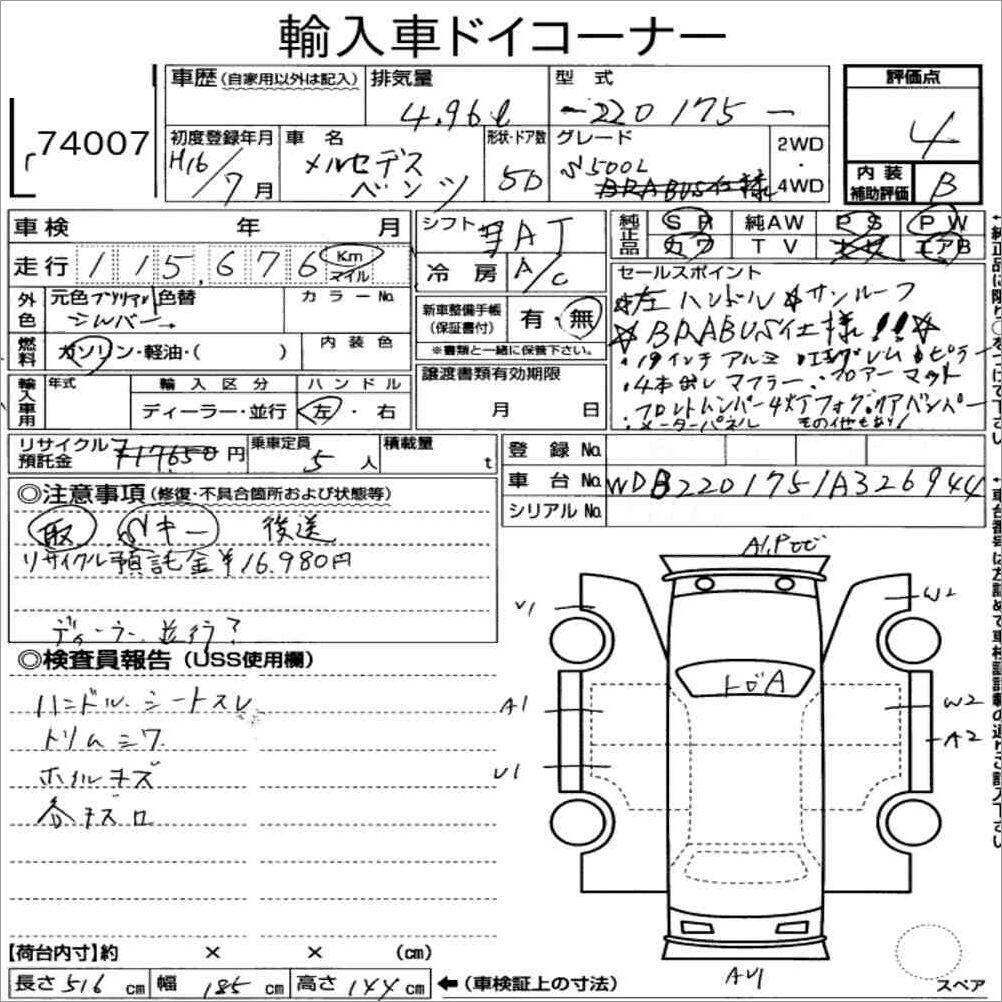 輸入車ドイコーナー
74007
車歴(自家用以外は記入)
排気量
4.96ℓ
型式
-220175-
評価点
4
内装補助評価
B
初度登録年月
H16/7月
車名
メルセデス
ベンツ
形状・ドア数
5D
グレード
S500L
BRABUS仕様
2WD
・
4WD
車検 年 月
走行 115,676 Km
マイル
シフト AT
冷房 A/C
純正品
SR 純AW PS PW
カワ TV エアB
外色
元色 ブリリアント 色替
シルバー→
カラーNo
燃料
ガソリン・軽油・( )
内装色
新車整備手帳
(保証書付)
有・無
※書類と一緒に保管下さい。
セールスポイント
☆左ハンドル ☆サンルーフ
☆BRABUS仕様!!☆
・19インチアルミ
・4本出しマフラー・フロアーマット
・メーターパネル その他もあり!
輸入車用
年式
輸入区分
ディーラー・並行
ハンドル
左・右
譲渡書類有効期限
月 日
リサイクル預託金
¥17650円
乗車定員
5人
積載量
t
登録No
車台No WDB2201751A326944
シリアルNo
◎注意事項(修復・不具合箇所および状態等)
取 Sキー 後送
リサイクル預託金¥16.980円
ディーラー、並行?
◎検査員報告(USS使用欄)
ハンドル.シートスレ
トリムシワ
ホイルキズ
各キズロ
A1.Pトビ
U1
W2
トビA
A1
W2
A2
U1
AU1
【荷台内寸】約 × × (cm)
長さ516cm 幅185cm 高さ144cm ←(車検証上の寸法)
スペア